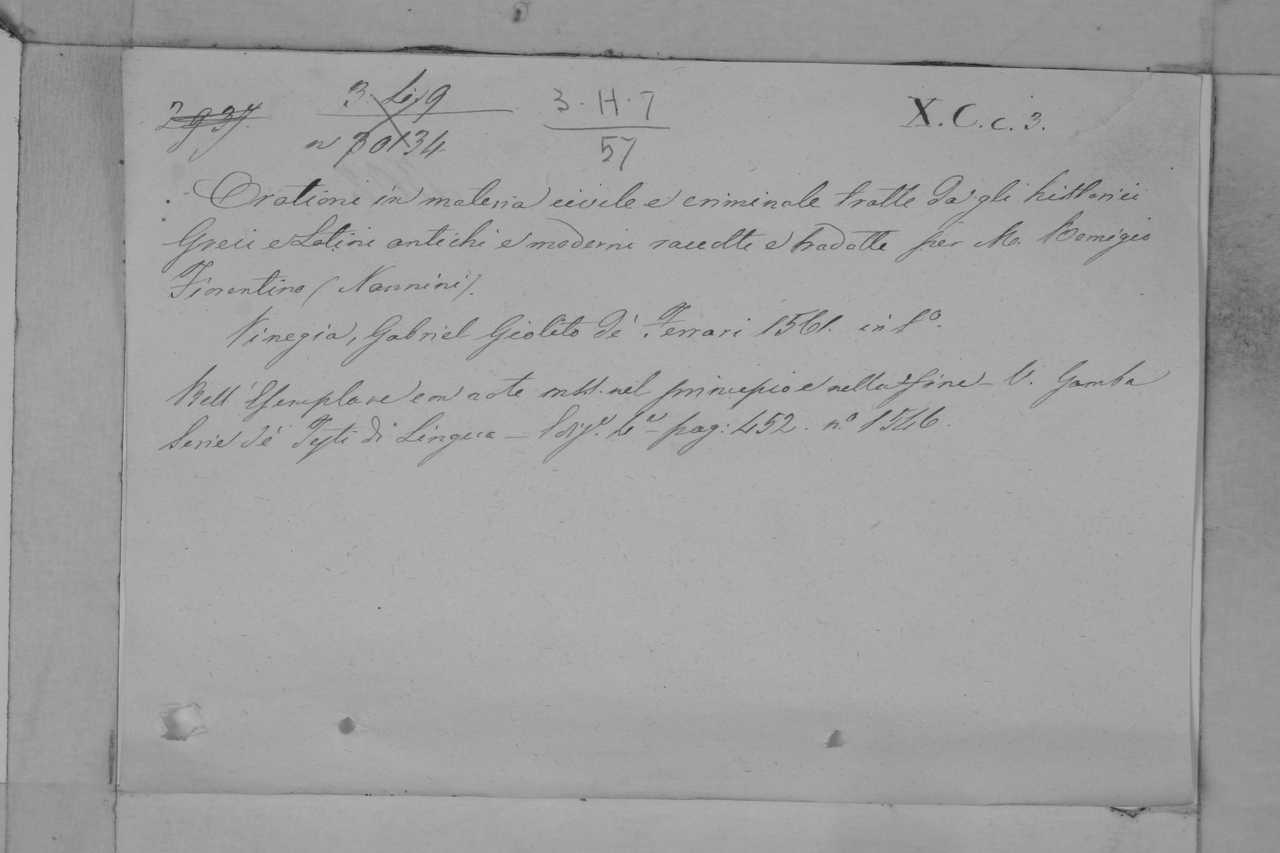 3. H. 7
57
X. C. c. 3.
Orationi in materia civile e criminale tratte da gli historici
Greci e Latini antichi e moderni raccolte e tradotte per M. Remigio
Fiorentino (Nannini).
Vinegia, Gabriel Giolito de' Ferrari 1561. in 4º.
Bell' Esemplare con note mss. nel principio e nella fine – V. Gamba
Serie de' Testi di Lingua – pag: 452. nº 1546.